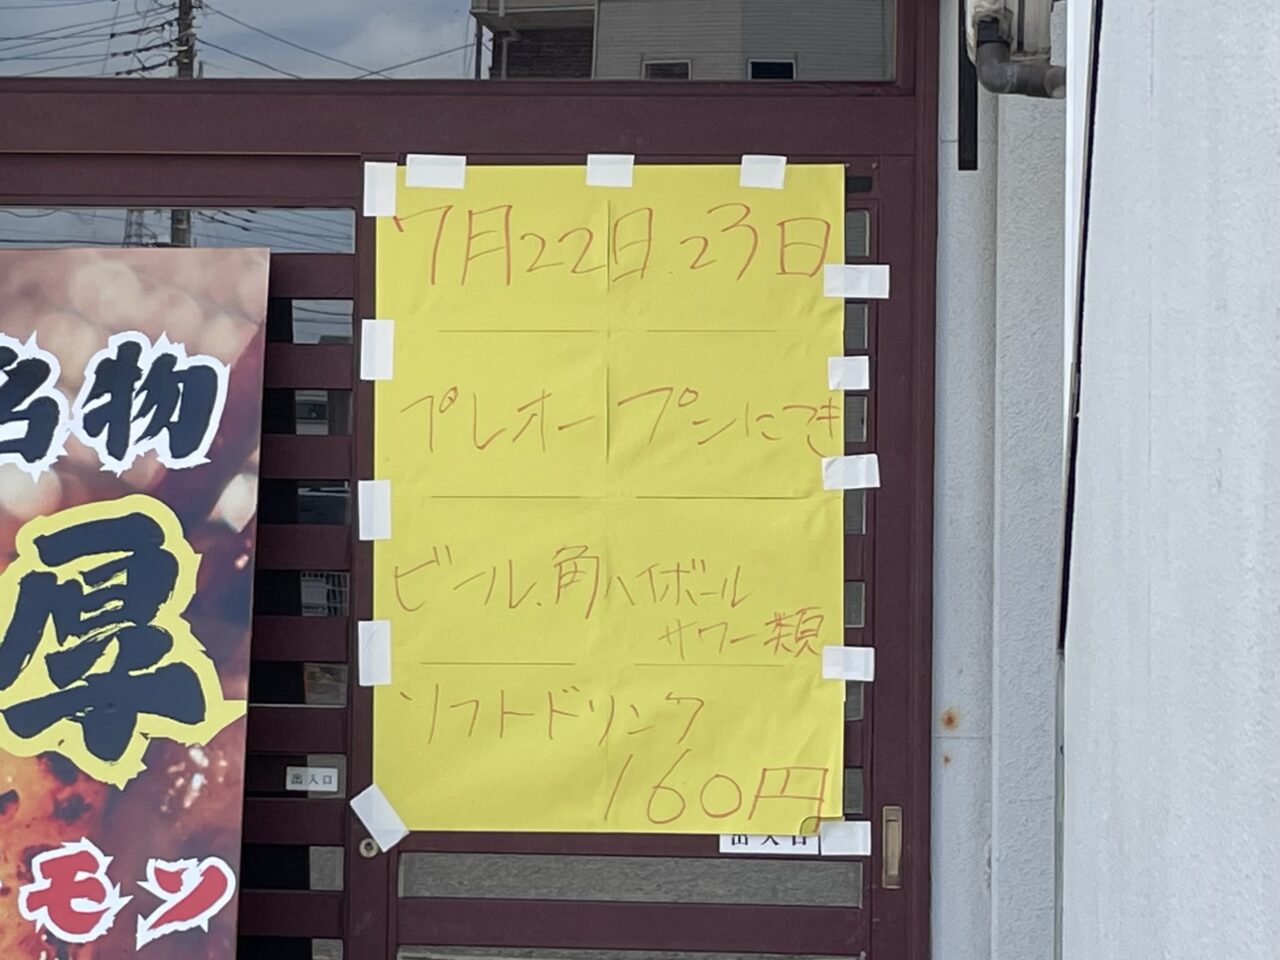 7月22日.23日
プレオープンにつき
ビール、角ハイボール
サワー類
ソフトドリンク
160円
出入口
出入口
名物
厚
モン